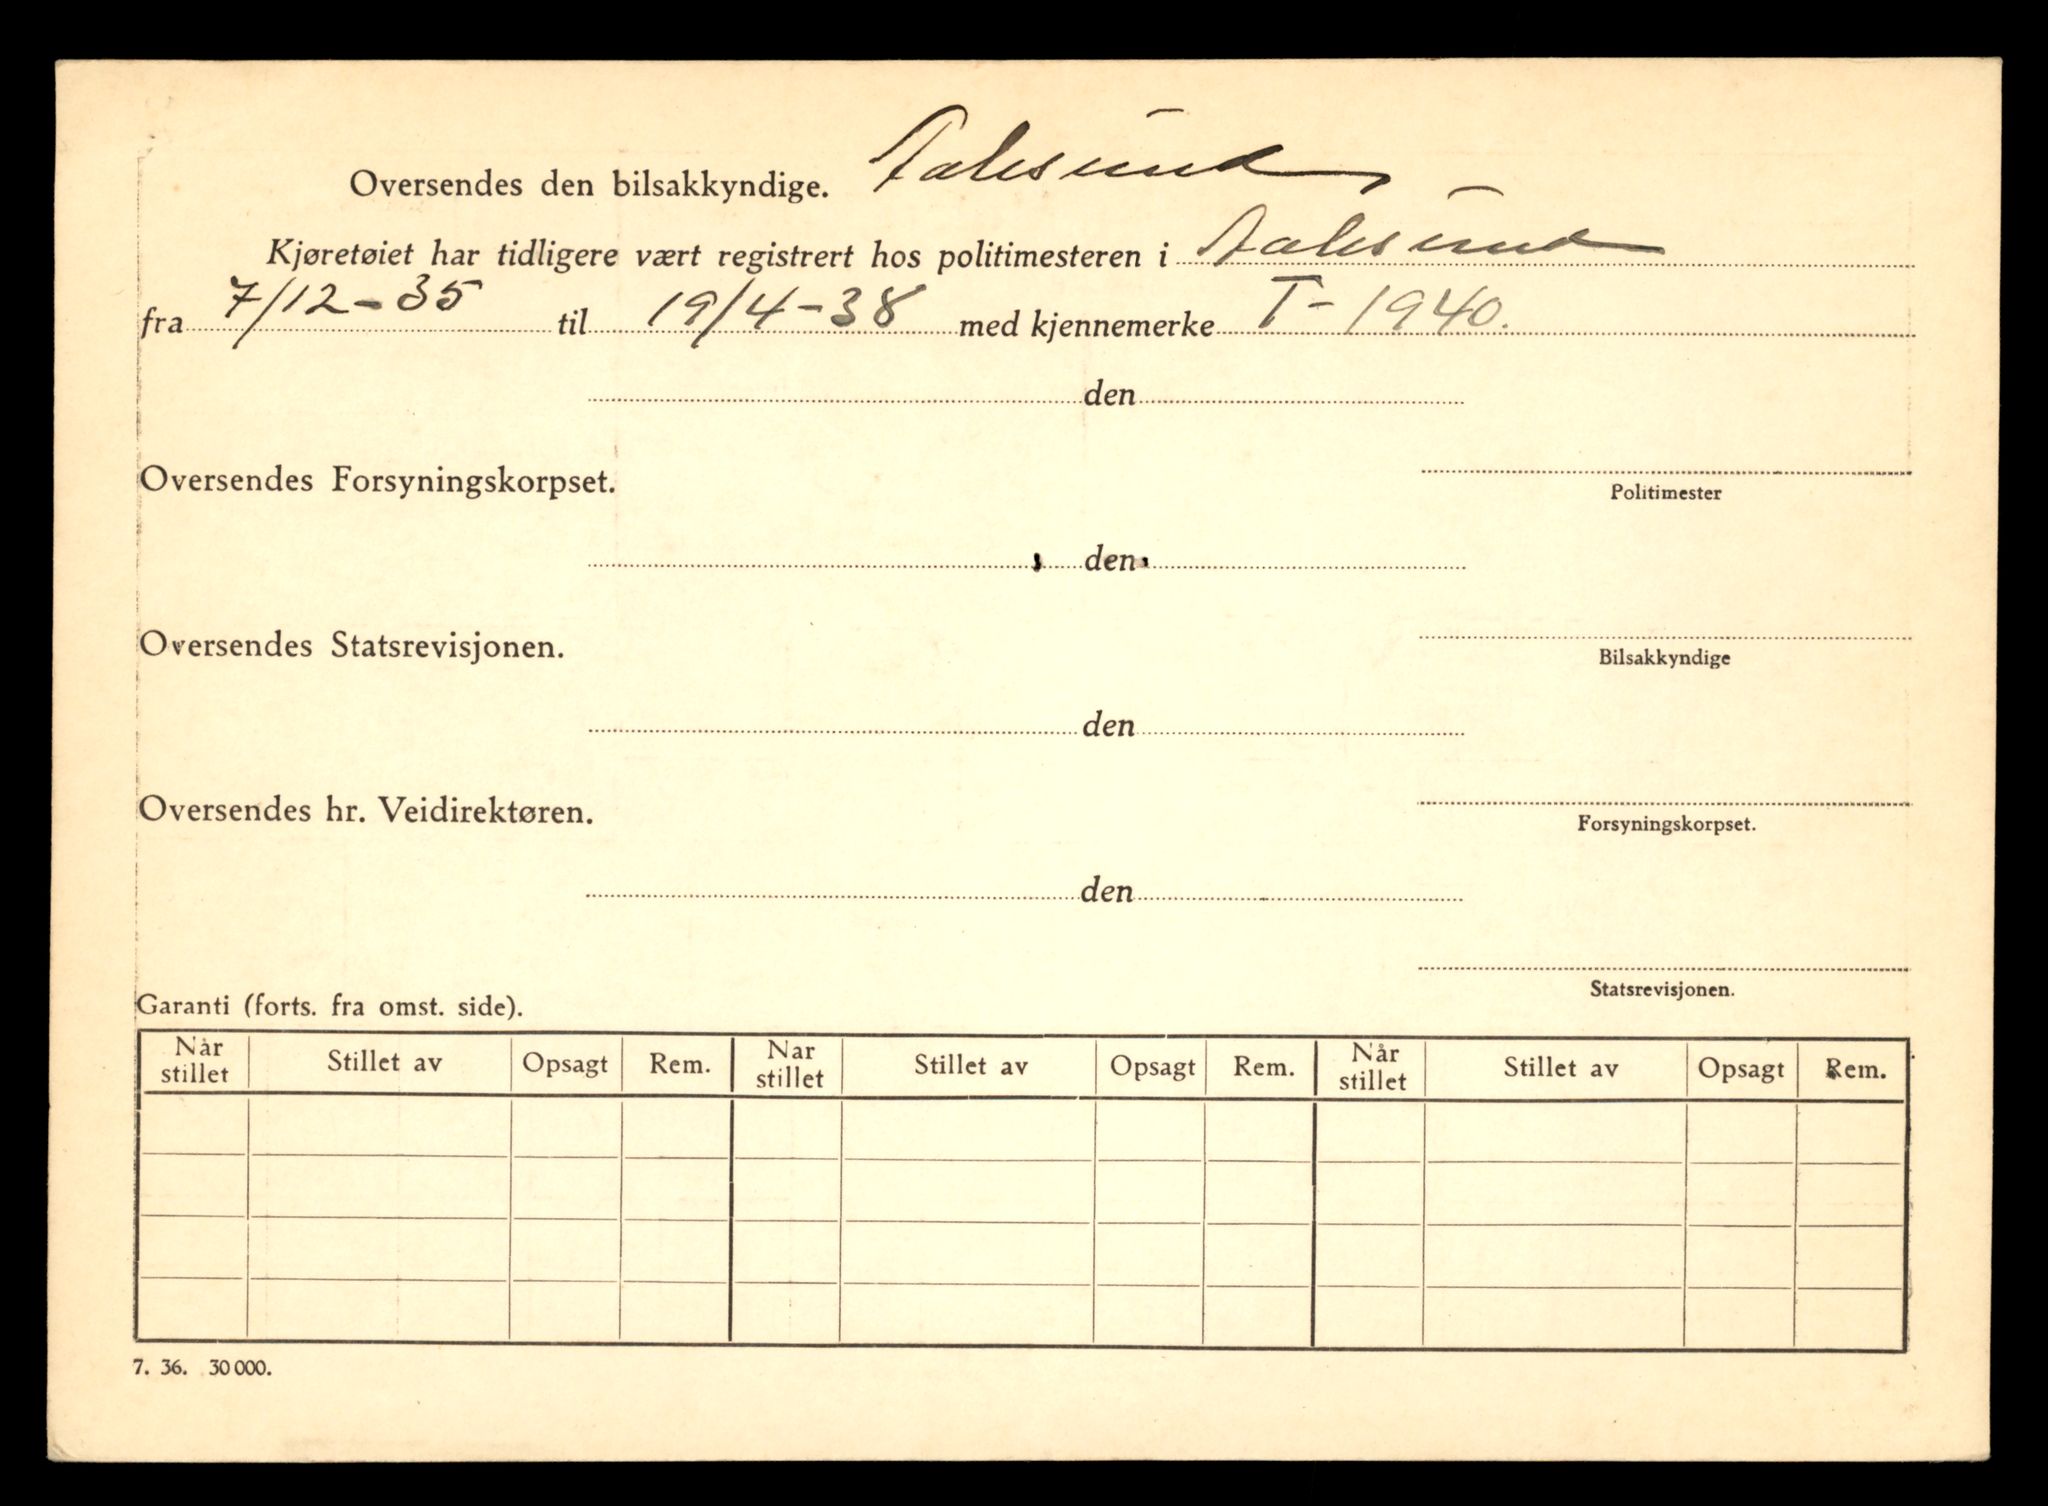 Oversendes den bilsakkyndige. Aalesund
Kjøretøiet har tidligere vært registrert hos politimesteren i Aalesund
fra 7/12-35 til 19/4-38 med kjennemerke T-1940.
den
Oversendes Forsyningskorpset.
Politimester
den
Oversendes Statsrevisjonen.
Bilsakkyndige
den
Oversendes hr. Veidirektøren.
Forsyningskorpset.
den
Statsrevisjonen.
Garanti (forts. fra omst. side).
Når stillet Stillet av Opsagt Rem. Nar stillet Stillet av Opsagt Rem. Når stillet Stillet av Opsagt Rem.
7. 36. 30 000.